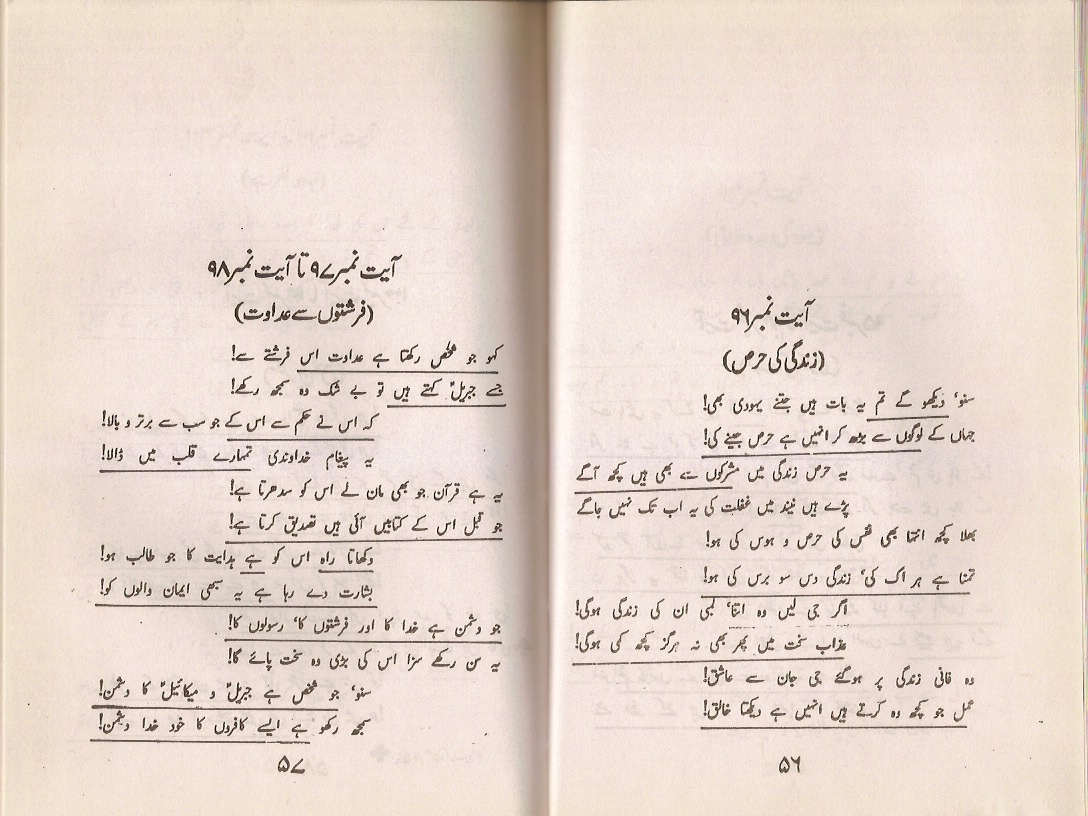 آیت نمبر ۹۶
(زندگی کی حرص)
سنو، دیکھو گے تم یہ بات ہیں جتنے یہودی بھی!
جہاں کے لوگوں سے بڑھ کر انہیں ہے حرص جینے کی!
یہ حرص زندگی میں مشرکوں سے بھی ہیں کچھ آگے
پڑے ہیں نیند میں غفلت کی یہ اب تک نہیں جاگے
بھلا کچھ انتہا بھی نفس کی حرص و ہوس کی ہو!
تمنا ہے ہر اک کی، زندگی دس سو برس کی ہو!
اگر جی لیں وہ اتنا، لمبی ان کی زندگی ہوگی!
عذاب سخت میں پھر بھی نہ ہرگز کچھ کمی ہوگی!
وہ فانی زندگی پر ہوگئے جی جان سے عاشق!
عمل جو کچھ وہ کرتے ہیں انہیں ہے دیکھتا خالق!
۵۶
آیت نمبر ۹۷ تا آیت نمبر ۹۸
(فرشتوں سے عداوت)
کہو جو شخص رکھتا ہے عداوت اس فرشتے سے!
جسے جبریلؑ کہتے ہیں تو بے شک وہ سمجھ رکھے!
کہ اس نے حکم سے اس کے جو سب سے برتر و بالا!
یہ پیغام خداوندی تمہارے قلب میں ڈالا!
یہ ہے قرآن جو بھی مان لے اس کو سدھرتا ہے!
جو قبل اس کے کتابیں آئی ہیں تصدیق کرتا ہے!
دکھاتا راہ اس کو ہے ہدایت کا جو طالب ہو!
بشارت دے رہا ہے یہ سبھی ایمان والوں کو!
جو دشمن ہے خدا کا اور فرشتوں کا، رسولوں کا!
یہ سن رکھے سزا اس کی بڑی وہ سخت پائے گا!
سنو، جو شخص ہے جبریلؑ و میکائیلؑ کا دشمن!
سمجھ رکھو ہے ایسے کافروں کا خود خدا دشمن!
۵۷